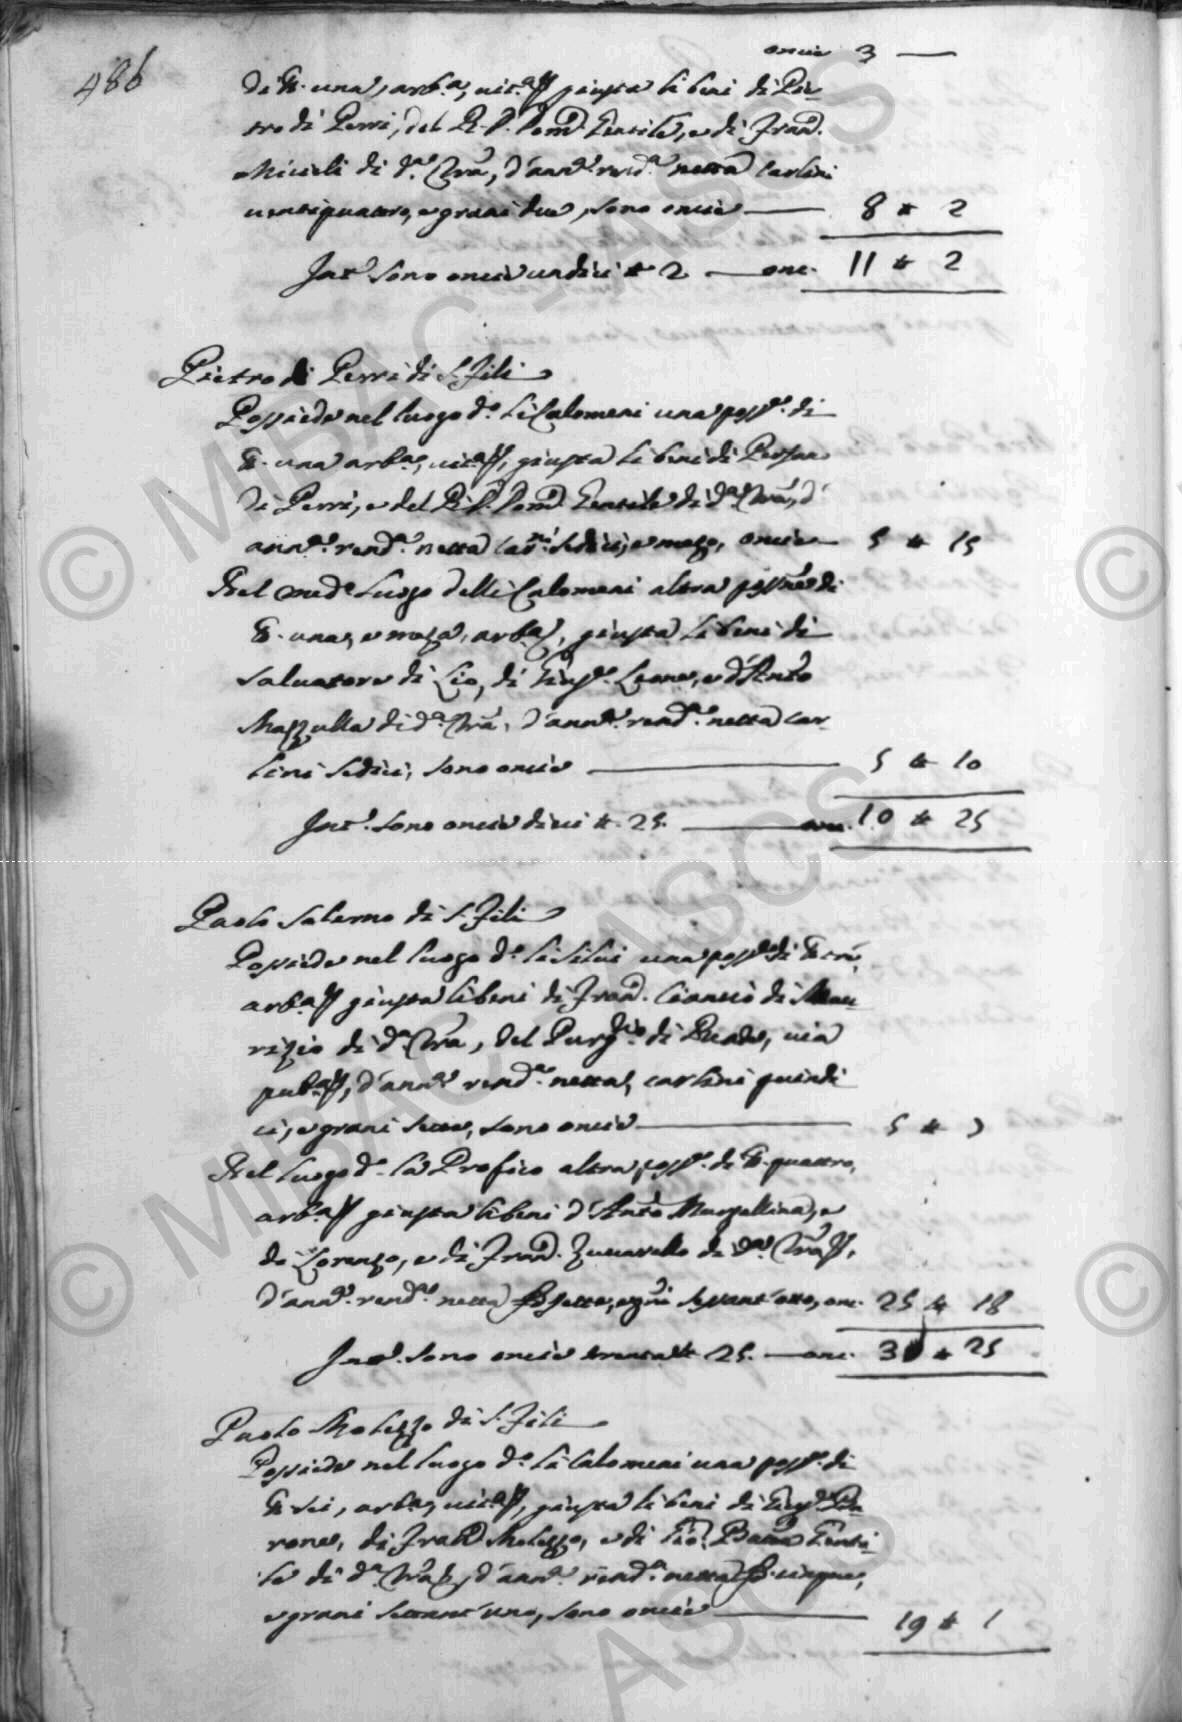 486
oncie 3 —
di tt. una, arb.ta, vit.ta giusta li beni di Pie-
tro di Perri, del R.P. Dom.co Gentile, e di Fran.co
Micieli di d.a Terra, d'ann.e rend.a netta carlini
ventiquattro, e grani due, sono oncie — 8 * 2
Int.o sono oncie undici * 2 — onc. 11 * 2
Pietro di Perri di S. Fili
Possiede nel luogo d.o li Calomeni una poss.e di
tt. una arb.ta, vit.ta, giusta li beni di
di Perri, e del R.P. Dom.co Gentile di d.a Terra, d'
ann.e rend.a netta car.ni sedici, e mezo, oncie — 5 * 15
Nel med.o luogo delli Calomeni altra poss.ne di
tt. una, e meza, arb.ta, giusta li beni di
Salvatore di Lio, di Gius.e Leone, e d'Ant.o
Mazzulla di d.a Terra, d'ann.e rend.a netta car-
lini sedici, sono oncie — 5 * 10
Int.o sono oncie dieci * 25. — onc. 10 * 25
Paolo Salerno di S. Fili
Possiede nel luogo d.o li Silvi una poss.e di tt. tre,
arb.ta giusta li beni di Fran.co Ciancio di Mau-
rizio di d.a Terra, del Purg.rio di Rende, via
pub.ca, d'ann.e rend.a netta, carlini quindi-
ci, e grani sette, sono oncie — 5 *
Nel luogo d.o lo Profico altra poss.e di tt. quattro,
arb.ta giusta li beni d'Ant.o Muzzellina, e
de Lorenzo, e di Fran.co Zuccarello di d.a Terra,
d'ann.e rend.a netta sette, e g.ni settant'otto, onc. 25 * 18
Int.o sono oncie trenta * 25. — onc. 30 * 25
Paolo Molezzo di S. Fili
Possiede nel luogo d.o li Calomeni una poss.e di
tt. sei, arb.ta, vit.ta, giusta li beni di Gius.e Per-
rone, di Fran.co Molezzo, e di Gio: Batta Genti-
le di d.a Terra, d'ann.e rend.a netta cinque,
e grani settant'uno, sono oncie — 19 * 1
© MIBAC - ASCS
© MIBAC - ASCS
ASCS
©
©